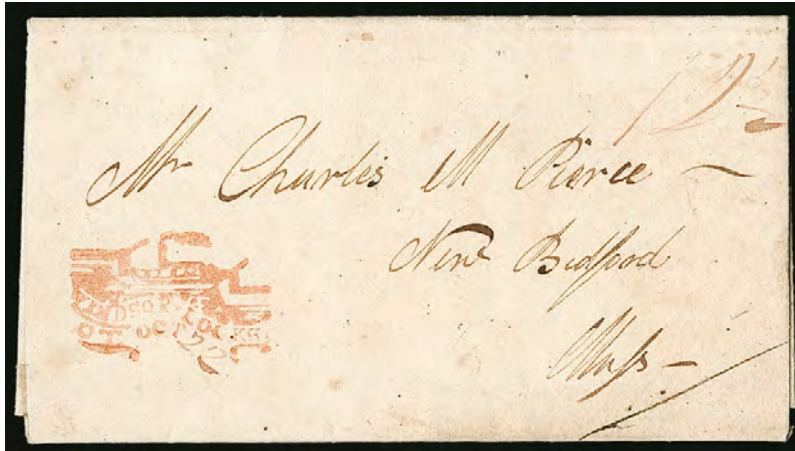 12½
Mr Charles M Pierce
New Bedford
Mass
OCT